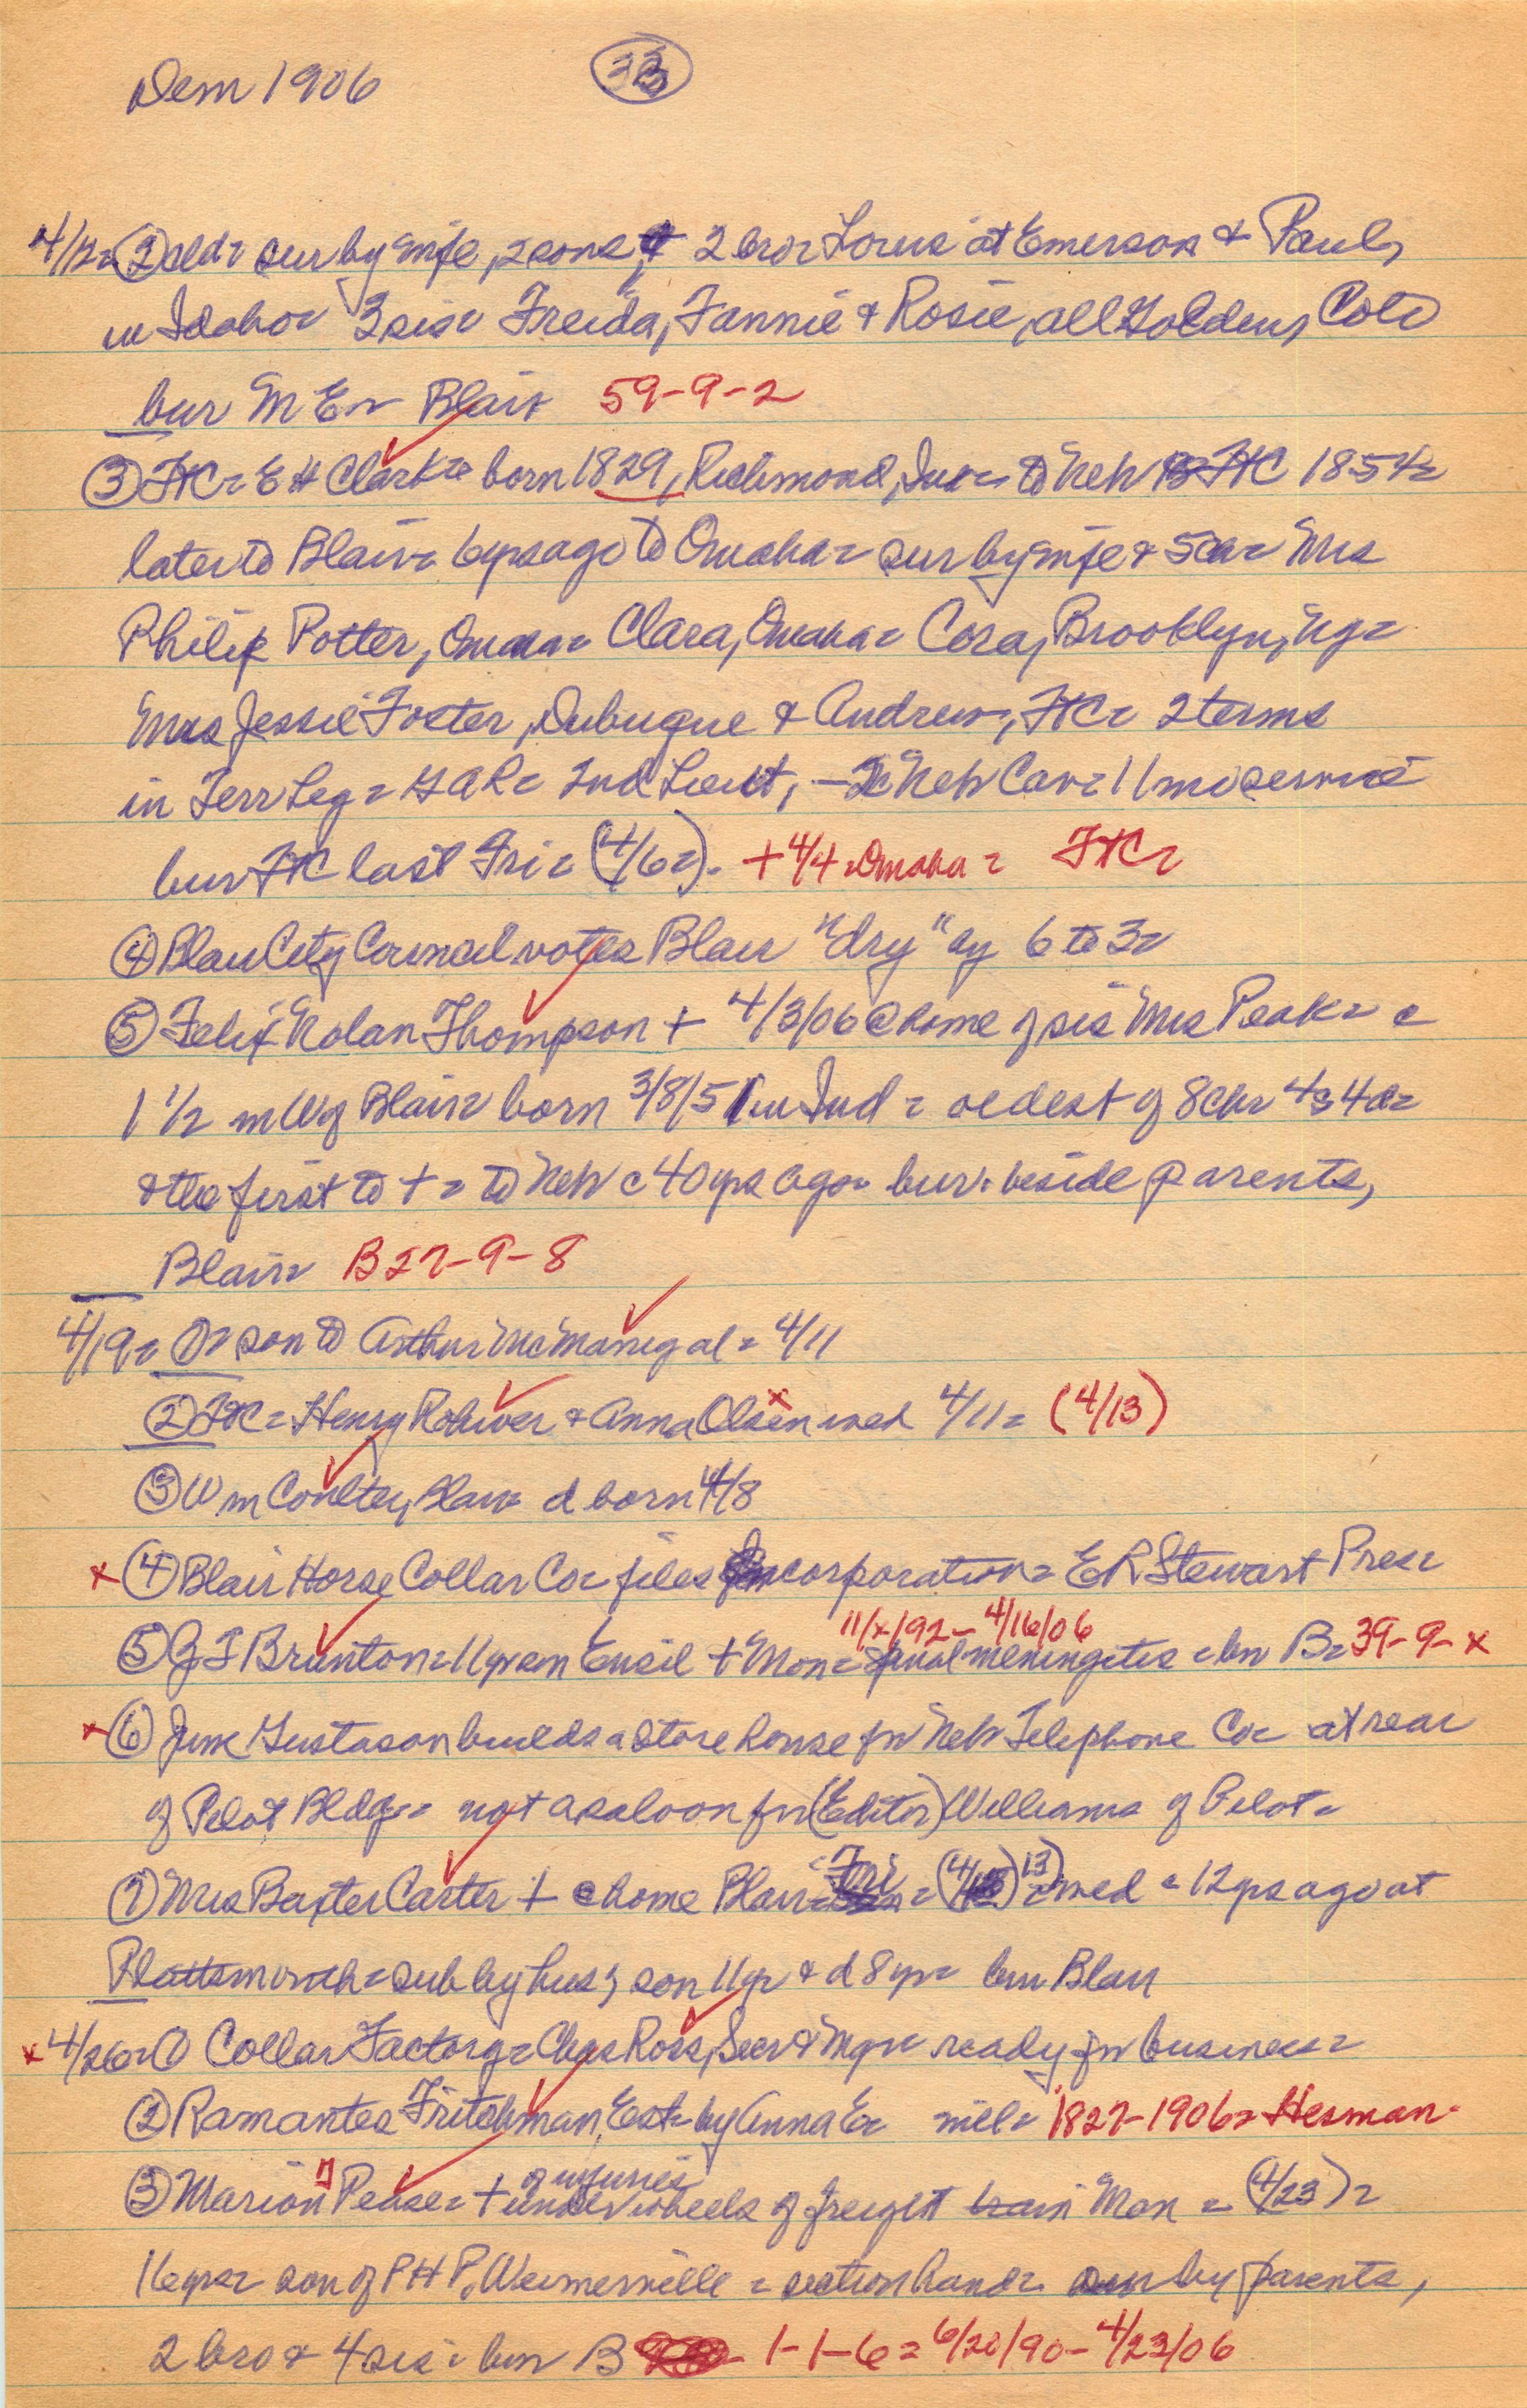 Dem 1906 33
4/12= ② cld= sur by wife, 2 sons, 2 bro= Louis at Emerson & Paul,
in Idaho= 3 sis= Freida, Fannie & Rosie, all Golden, Colo
bur M E= Blair 59-9-2
③ FTC= E H Clark= born 1829, Richmond, Ind= to Neb FTC 1854=
later to Blair= 6 yrs ago to Omaha= sur by wife & 5 ch= Mrs
Philip Potter, Omaha= Clara, Omaha= Cora, Brooklyn, Ny=
Mrs Jessie Foster, Dubuque & Andrew, FTC= 2 terms
in Terr Leg= GAR= 2nd Lieut, - Neb Cav= 11 mo service
bur FTC last Fri= (4/6=). + 4/4 = Omaha= FTC=
④ Blair City Council votes Blair "dry" by 6 to 3=
⑤ Felix Nolan Thompson + 4/3/06 @ home of sis Mrs Peak= c
1 1/2 m W of Blair= born 3/8/51 in Ind= oldest of 8 ch= 4s 4d=
& the first to += to Neb c 40 yrs ago= bur= beside parents,
Blair= B 27-9-8
4/19= ①= son to Arthur McManegal= 4/11
② FTC= Henry Rohwer & Anna Olsen wed 4/11= (4/13)
③ Wm Coulter, Blair= d born 4/8
x ④ Blair Horse Collar Co= files incorporation= E R Stewart Pres=
11/x/92- 4/16/06
⑤ J F Brunton= 11 yr son Ensil + Mon= spinal meningitis= bur B= 39-9-x
x ⑥ June Gustason builds a store house for Neb Telephone Co= at rear
of Pilot Bldg= not a saloon for (Editor) Williams of Pilot=
⑦ Mrs Baxter Carter + @ home Blair= Fri= (4/13)= wed= 12 yrs ago at
Plattsmouth= sub by hus, son 11 yr & d 8 yr= bur Blair
x 4/26= ① Collar Factory= Chas Ross, Secr & Mgr= ready for business=
② Ramantes Fritchman, Est= by Anna E= 1827-1906= Herman-
of injuries
③ Marion Pease= + under wheels of freight train Mon= (4/23)=
16 yrs= son of P H P, Weimerville= section hand= sur by parents,
2 bro & 4 sis= bur B 1-1-6= 6/20/90- 4/23/06